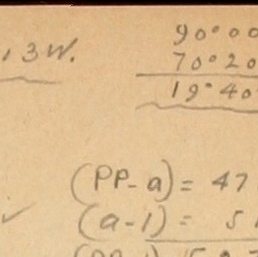 13W.
90°00
70°20
19°40
(PP-a)= 47
✓ (a-1)= 51